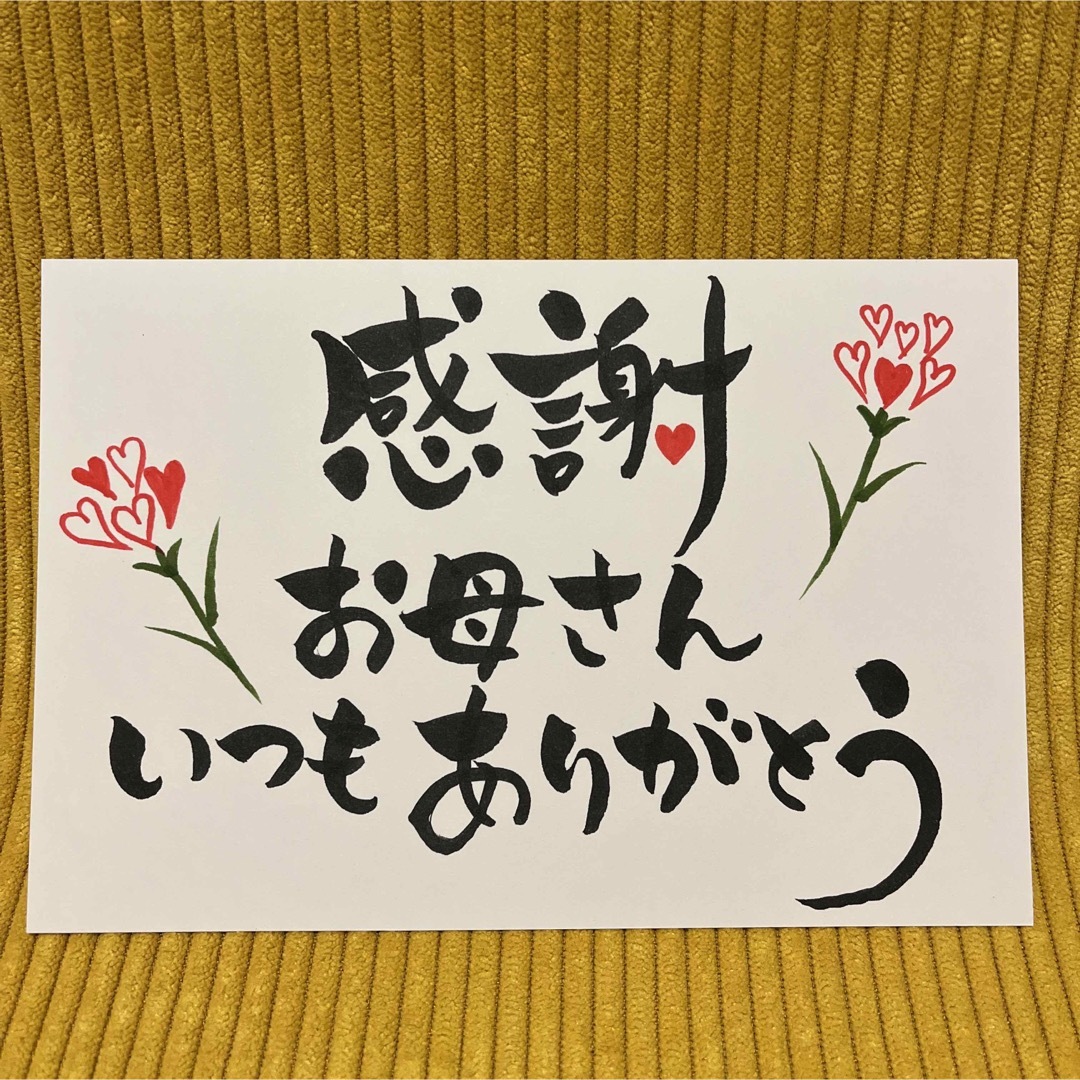 感謝
お母さん
いつもありがとう